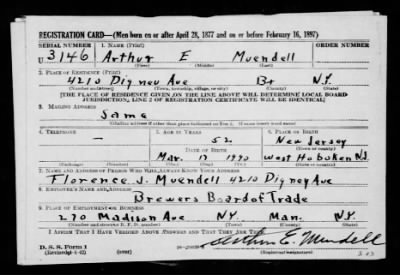 REGISTRATION CARD—(Men born on or after April 28, 1877 and on or before February 16, 1897)
SERIAL NUMBER 1. NAME (Print) ORDER NUMBER
U 3146 Arthur E Muendell
(First) (Middle) (Last)
2. PLACE OF RESIDENCE (Print)
4210 Digney Ave Bx N.Y.
(Number and street) (Town, township, village, or city) (County) (State)
[THE PLACE OF RESIDENCE GIVEN ON THE LINE ABOVE WILL DETERMINE LOCAL BOARD
JURISDICTION; LINE 2 OF REGISTRATION CERTIFICATE WILL BE IDENTICAL]
3. MAILING ADDRESS
Same
[Mailing address if other than place indicated on line 2. If same insert word same]
4. TELEPHONE 5. AGE IN YEARS 6. PLACE OF BIRTH
— 52 New Jersey
DATE OF BIRTH (Town or county)
Mar. 17 1890 West Hoboken N.J.
(Exchange) (Number) (Mo.) (Day) (Yr.) (State or country)
7. NAME AND ADDRESS OF PERSON WHO WILL ALWAYS KNOW YOUR ADDRESS
Florence J. Muendell 4210 Digney Ave
8. EMPLOYER'S NAME AND ADDRESS
Brewers Board of Trade
9. PLACE OF EMPLOYMENT OR BUSINESS
270 Madison Ave NY. Man. N.Y.
(Number and street or R. F. D. number) (Town) (County) (State)
I AFFIRM THAT I HAVE VERIFIED ABOVE ANSWERS AND THAT THEY ARE TRUE.
D. S. S. Form 1
(Revised 4-1-42) (over) Arthur E. Muendell